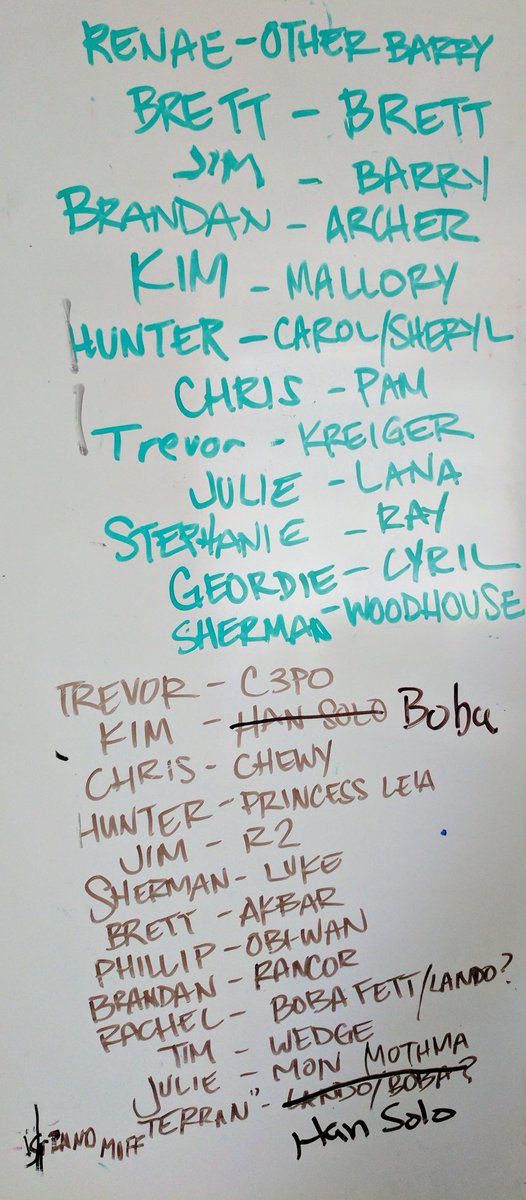 RENAE - OTHER BARRY
BRETT - BRETT
JIM - BARRY
BRANDAN - ARCHER
KIM - MALLORY
HUNTER - CAROL/SHERYL
CHRIS - PAM
Trevor - KREIGER
JULIE - LANA
STEPHANIE - RAY
GEORDIE - CYRIL
SHERMAN - WOODHOUSE
TREVOR - C3PO
KIM - HAN SOLO Boba
CHRIS - CHEWY
HUNTER - PRINCESS LEIA
JIM - R2
SHERMAN - LUKE
BRETT - AKBAR
PHILLIP - OBI-WAN
BRANDAN - RANCOR
RACHEL - BOBA FETT/LANDO?
TIM - WEDGE
JULIE - MON MOTHMA
MOFF TERRAN" - LANDO/BOBA?
Han Solo